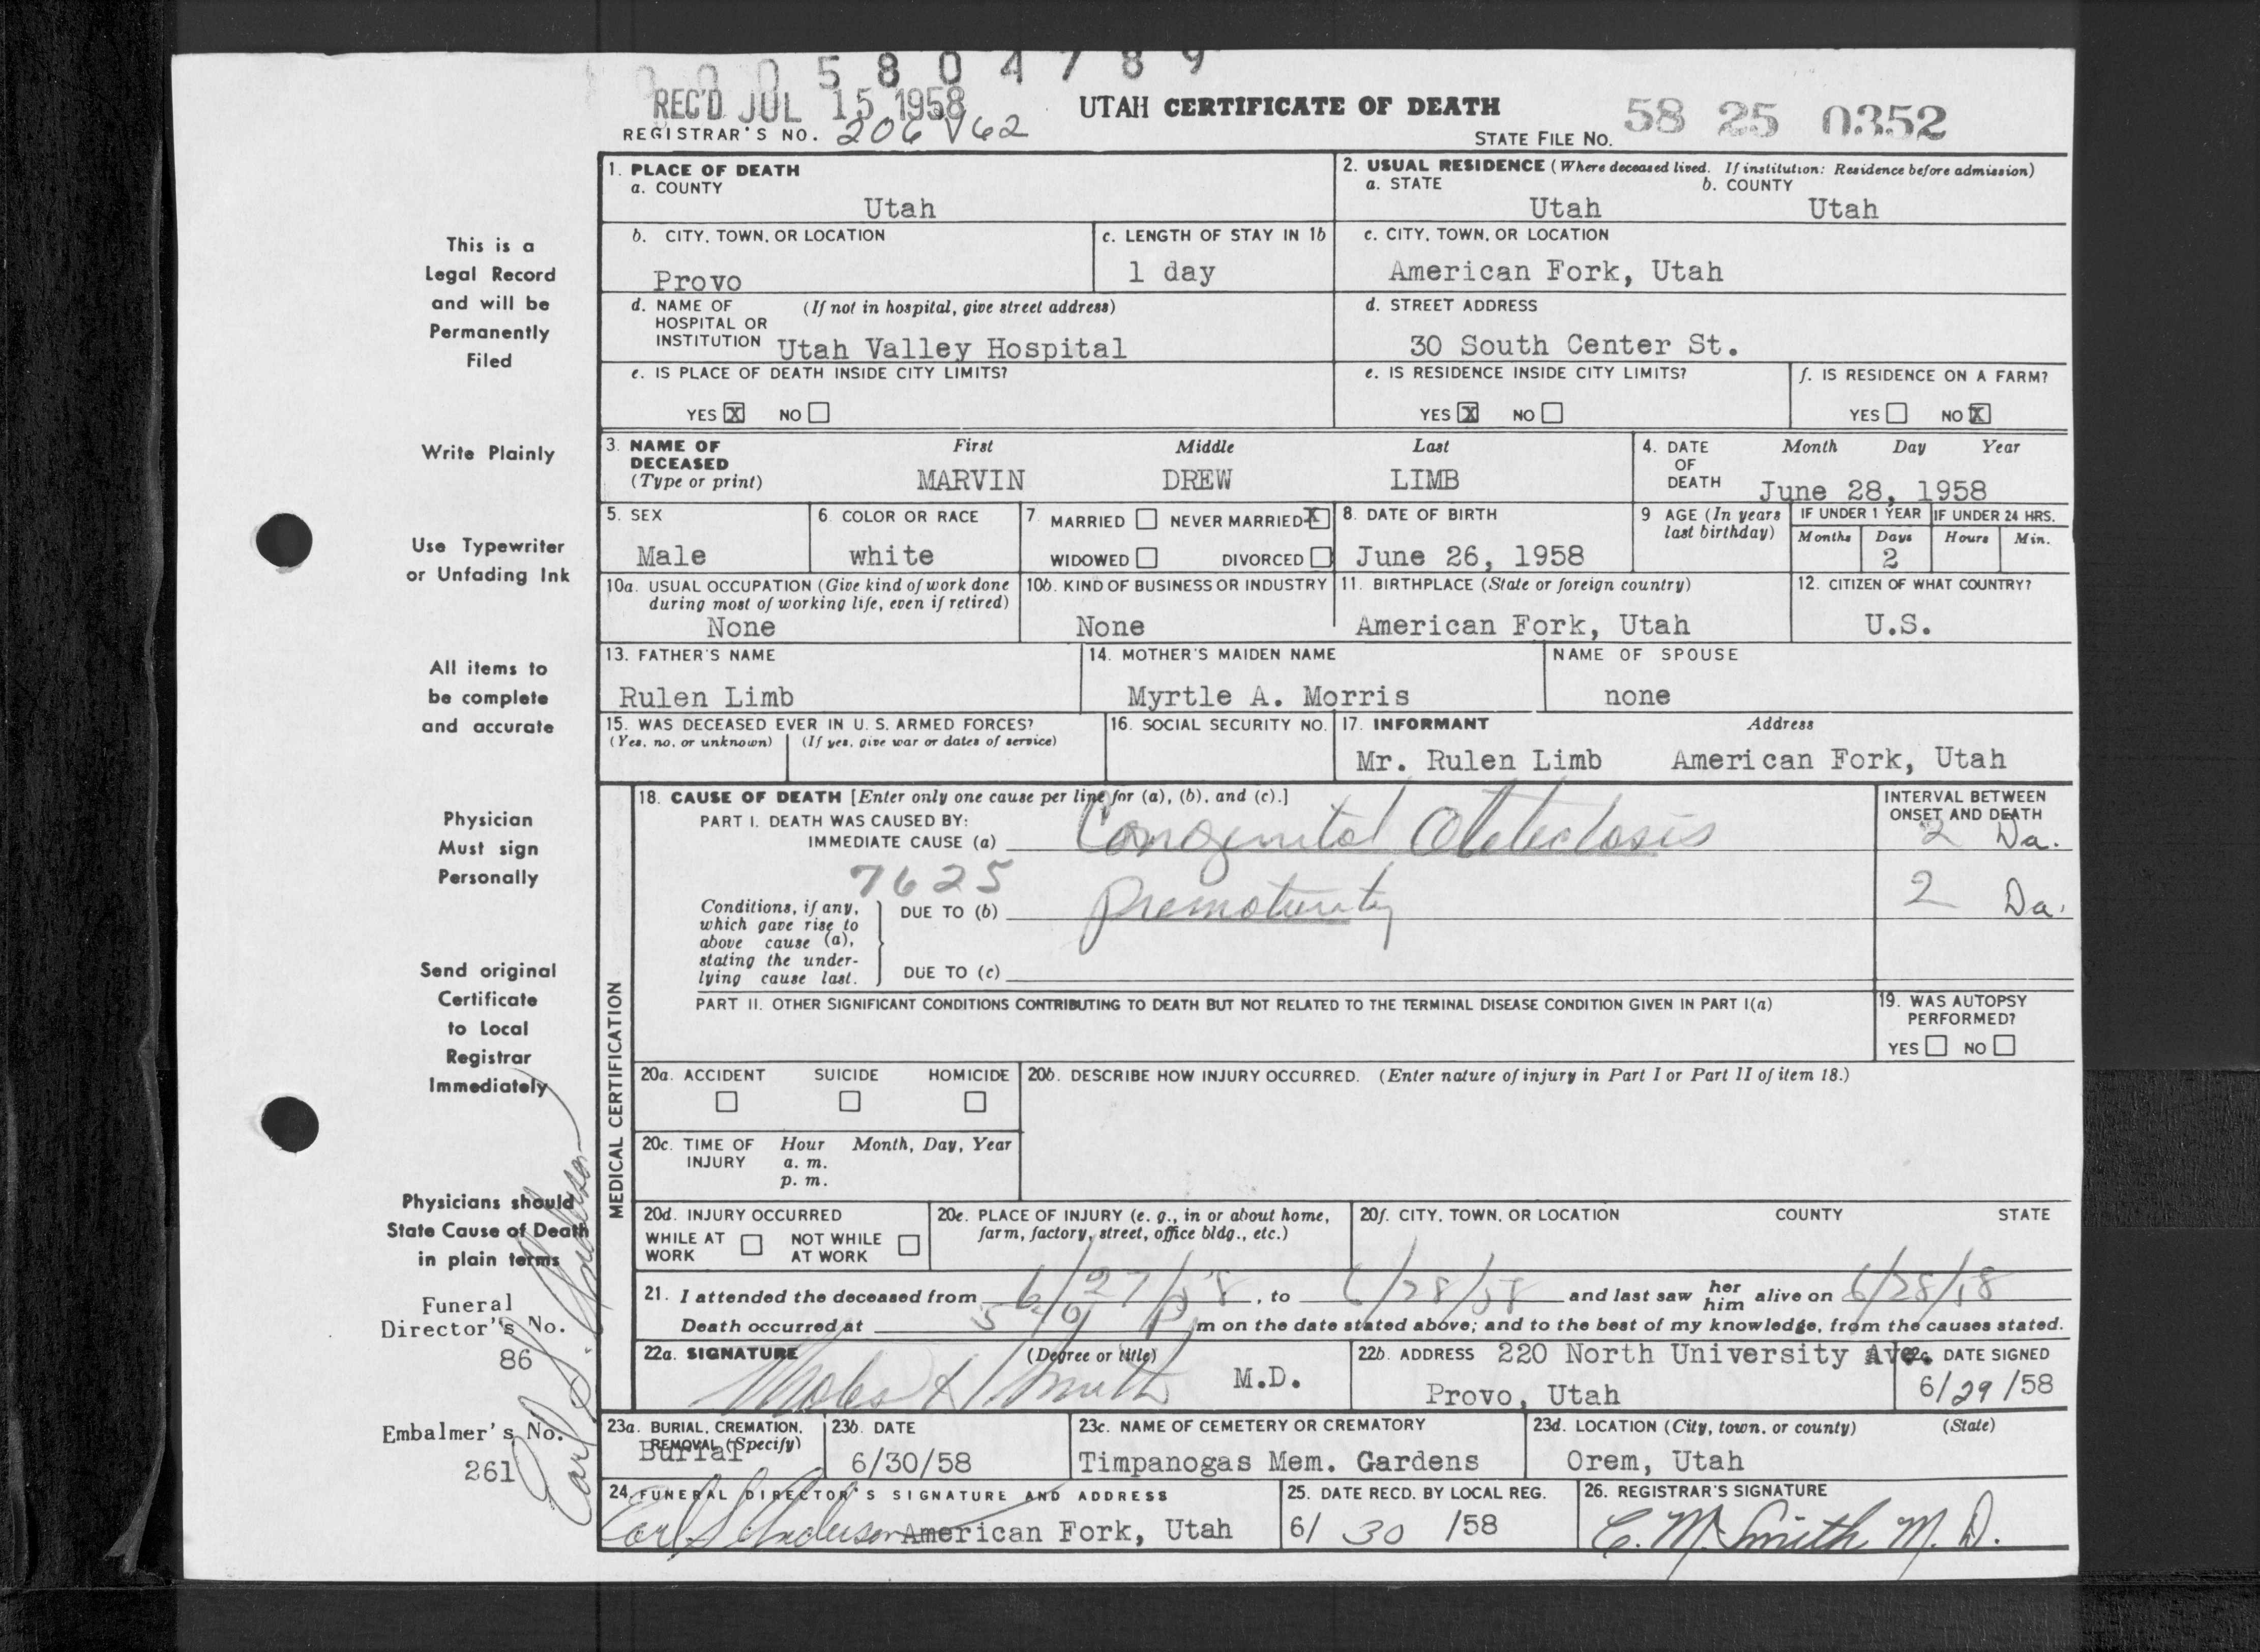 0005804789
REC'D JUL 15 1958
UTAH CERTIFICATE OF DEATH
REGISTRAR'S NO. 206 V62
STATE FILE NO. 58 25 0352
1. PLACE OF DEATH
a. COUNTY
Utah
2. USUAL RESIDENCE (Where deceased lived. If institution: Residence before admission)
a. STATE b. COUNTY
Utah Utah
b. CITY, TOWN, OR LOCATION
Provo
c. LENGTH OF STAY IN 1b
1 day
c. CITY, TOWN, OR LOCATION
American Fork, Utah
d. NAME OF (If not in hospital, give street address)
HOSPITAL OR
INSTITUTION Utah Valley Hospital
d. STREET ADDRESS
30 South Center St.
e. IS PLACE OF DEATH INSIDE CITY LIMITS?
YES X NO
e. IS RESIDENCE INSIDE CITY LIMITS?
YES X NO
f. IS RESIDENCE ON A FARM?
YES NO X
3. NAME OF DECEASED (Type or print)
First Middle Last
MARVIN DREW LIMB
4. DATE OF DEATH
Month Day Year
June 28, 1958
5. SEX
Male
6 COLOR OR RACE
white
7 MARRIED NEVER MARRIED X
WIDOWED DIVORCED
8. DATE OF BIRTH
June 26, 1958
9 AGE (In years last birthday)
IF UNDER 1 YEAR IF UNDER 24 HRS.
Months Days Hours Min.
2
10a. USUAL OCCUPATION (Give kind of work done during most of working life, even if retired)
None
10b. KIND OF BUSINESS OR INDUSTRY
None
11. BIRTHPLACE (State or foreign country)
American Fork, Utah
12. CITIZEN OF WHAT COUNTRY?
U.S.
13. FATHER'S NAME
Rulen Limb
14. MOTHER'S MAIDEN NAME
Myrtle A. Morris
NAME OF SPOUSE
none
15. WAS DECEASED EVER IN U. S. ARMED FORCES?
(Yes, no, or unknown) (If yes, give war or dates of service)
16. SOCIAL SECURITY NO.
17. INFORMANT Address
Mr. Rulen Limb American Fork, Utah
MEDICAL CERTIFICATION
18. CAUSE OF DEATH [Enter only one cause per line for (a), (b), and (c).]
PART I. DEATH WAS CAUSED BY:
IMMEDIATE CAUSE (a) Congenital Atelectasis
INTERVAL BETWEEN ONSET AND DEATH
2 Da.
7625
Conditions, if any, which gave rise to above cause (a), stating the underlying cause last.
DUE TO (b) Prematurity
2 Da.
DUE TO (c)
PART II. OTHER SIGNIFICANT CONDITIONS CONTRIBUTING TO DEATH BUT NOT RELATED TO THE TERMINAL DISEASE CONDITION GIVEN IN PART I(a)
19. WAS AUTOPSY PERFORMED?
YES NO
20a. ACCIDENT SUICIDE HOMICIDE
20b. DESCRIBE HOW INJURY OCCURRED. (Enter nature of injury in Part I or Part II of item 18.)
20c. TIME OF INJURY
Hour Month, Day, Year
a. m.
p. m.
20d. INJURY OCCURRED
WHILE AT WORK NOT WHILE AT WORK
20e. PLACE OF INJURY (e. g., in or about home, farm, factory, street, office bldg., etc.)
20f. CITY, TOWN, OR LOCATION COUNTY STATE
21. I attended the deceased from 6/27/58, to 6/28/58 and last saw her him alive on 6/28/58
Death occurred at P m on the date stated above; and to the best of my knowledge, from the causes stated.
22a. SIGNATURE (Degree or title)
Smith M.D.
22b. ADDRESS 220 North University Ave.
Provo, Utah
22c. DATE SIGNED
6/29/58
23a. BURIAL, CREMATION, REMOVAL (Specify)
Burial
23b. DATE
6/30/58
23c. NAME OF CEMETERY OR CREMATORY
Timpanogas Mem. Gardens
23d. LOCATION (City, town, or county) (State)
Orem, Utah
24. FUNERAL DIRECTOR'S SIGNATURE AND ADDRESS
Earl S Anderson American Fork, Utah
25. DATE RECD. BY LOCAL REG.
6/ 30 /58
26. REGISTRAR'S SIGNATURE
C. M. Smith M. D.
This is a
Legal Record
and will be
Permanently
Filed
Write Plainly
Use Typewriter
or Unfading Ink
All items to
be complete
and accurate
Physician
Must sign
Personally
Send original
Certificate
to Local
Registrar
Immediately
Physicians should
State Cause of Death
in plain terms
Funeral
Director's No.
86
Embalmer's No.
261
Earl S. Anderson